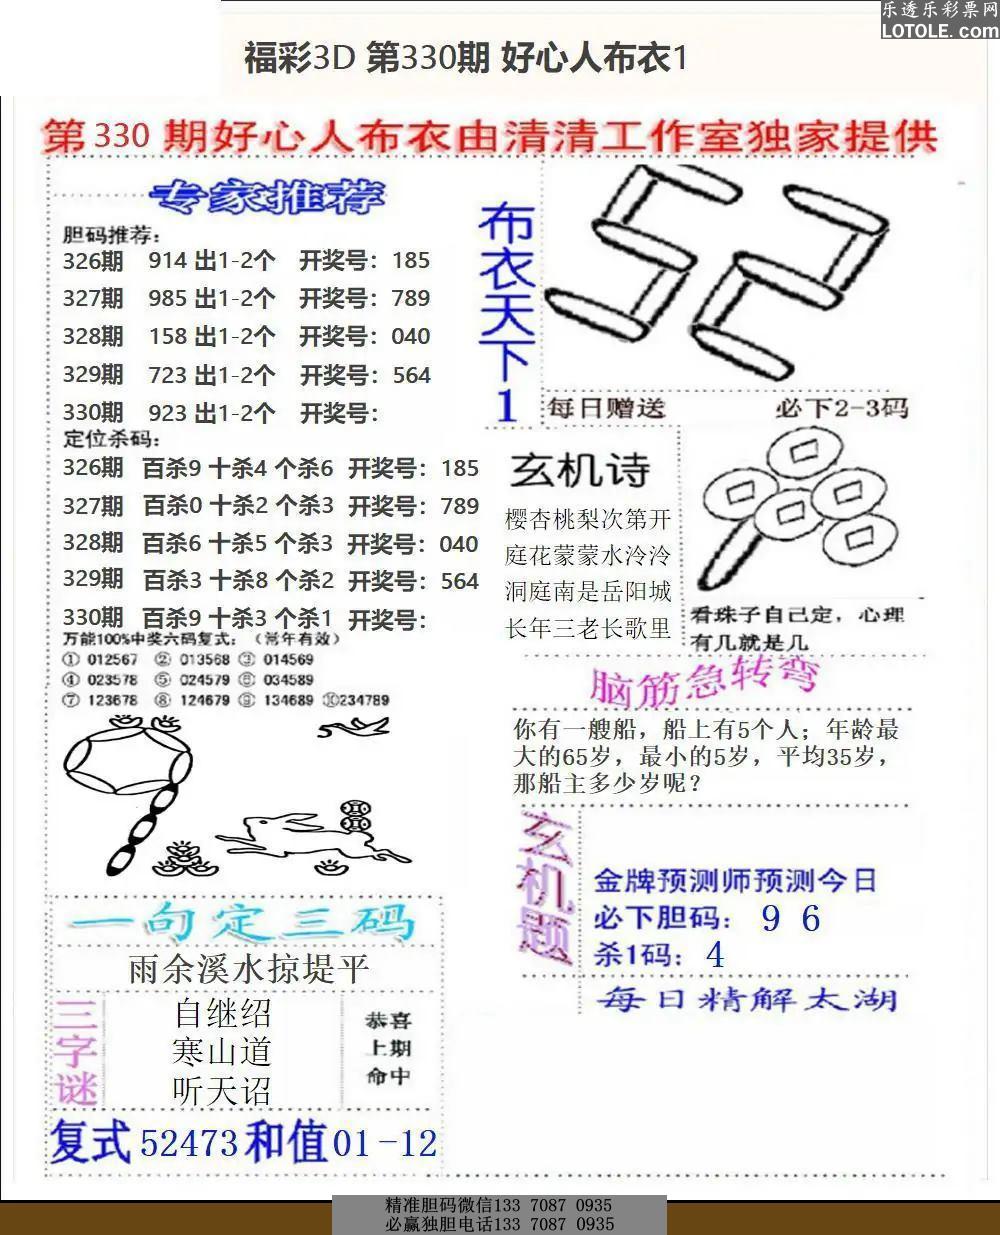 乐透乐彩票网
LOTOLE.com
福彩3D 第330期 好心人布衣1
第330 期好心人布衣由清清工作室独家提供
专家推荐
胆码推荐：
326期 914 出1-2个 开奖号：185
327期 985 出1-2个 开奖号：789
328期 158 出1-2个 开奖号：040
329期 723 出1-2个 开奖号：564
330期 923 出1-2个 开奖号：
定位杀码：
326期 百杀9 十杀4 个杀6 开奖号：185
327期 百杀0 十杀2 个杀3 开奖号：789
328期 百杀6 十杀5 个杀3 开奖号：040
329期 百杀3 十杀8 个杀2 开奖号：564
330期 百杀9 十杀3 个杀1 开奖号：
万能100%中奖六码复式：（常年有效）
① 012567 ② 013568 ③ 014569
④ 023578 ⑤ 024579 ⑥ 034589
⑦ 123678 ⑧ 124679 ⑨ 134689 ⑩234789
布衣天下1
52
每日赠送 必下2-3码
玄机诗
樱杏桃梨次第开
庭花蒙蒙水泠泠
洞庭南是岳阳城
长年三老长歌里
看珠子自己定，心理
有几就是几
脑筋急转弯
你有一艘船，船上有5个人；年龄最
大的65岁，最小的5岁，平均35岁，
那船主多少岁呢？
玄机题
金牌预测师预测今日
必下胆码： 9 6
杀1码： 4
每日精解太湖
一句定三码
雨余溪水掠堤平
三字谜
自继绍
寒山道
听天诏
恭喜
上期
命中
复式 52473 和值 01-12
精准胆码微信133 7087 0935
必赢独胆电话133 7087 0935